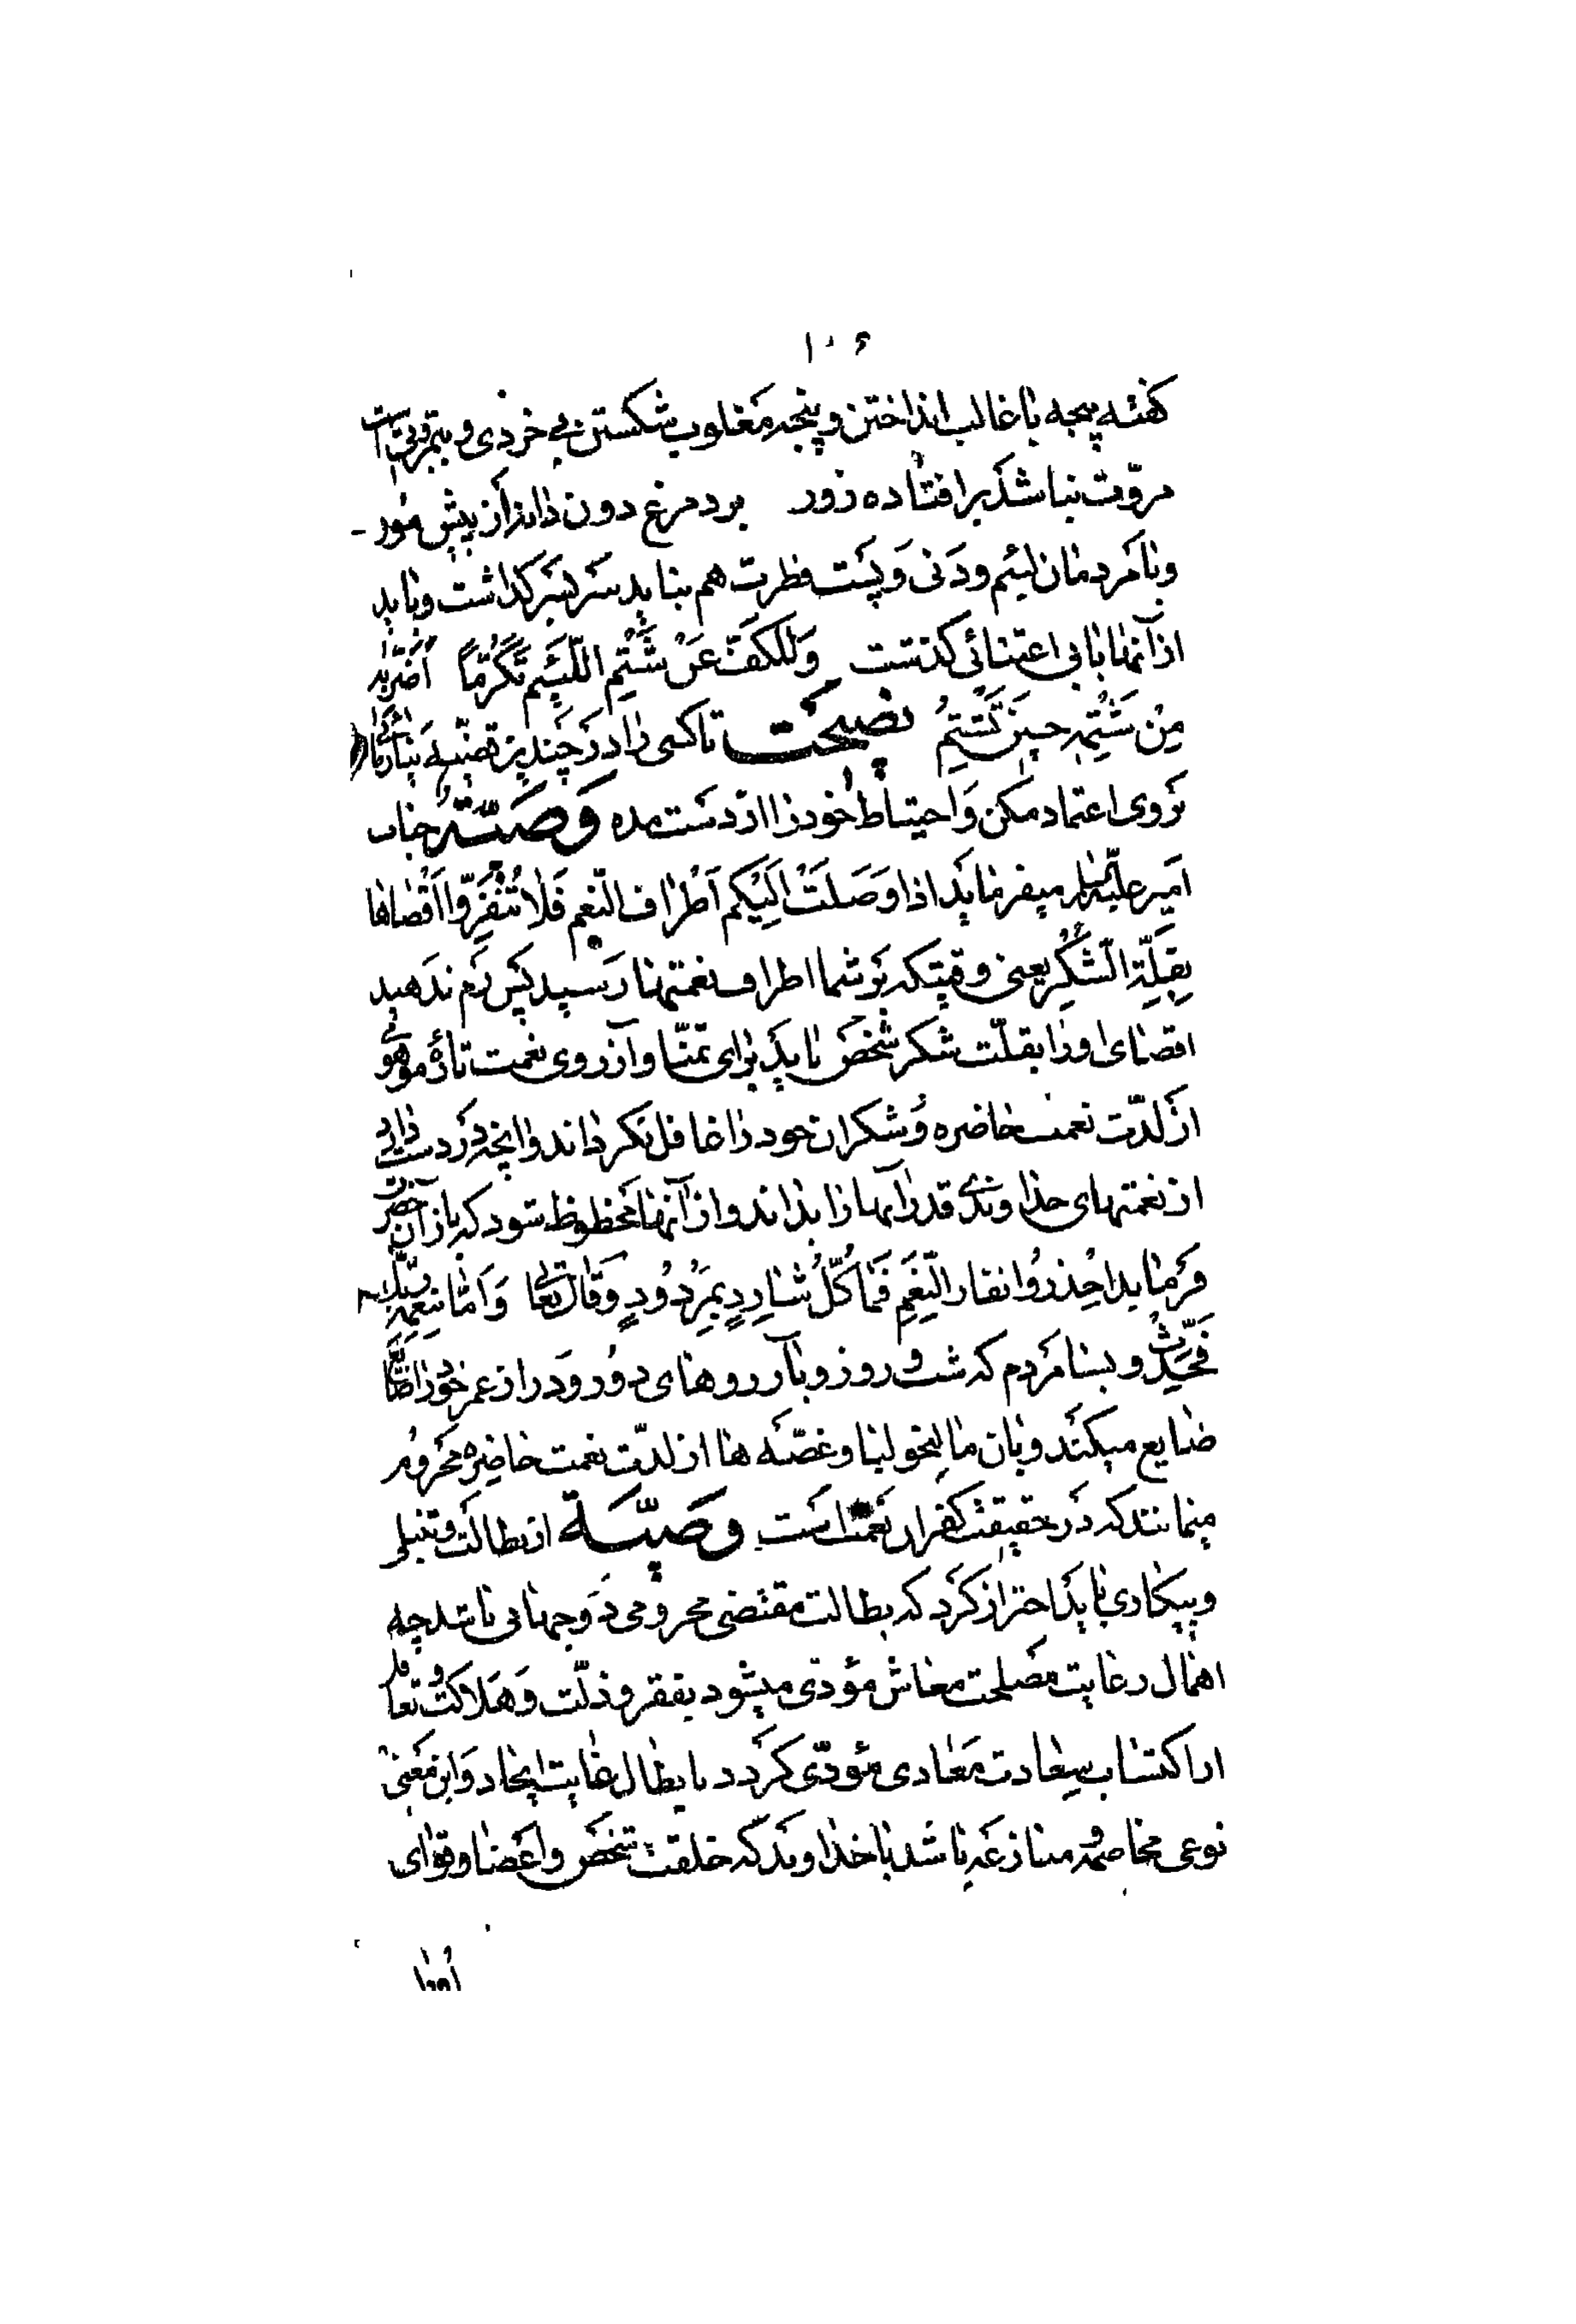 ۱۰۶
گفته پنجه با غالب انداختن و پنجه مغلوب شکستن بی خردی و بیمروتی است
مروّت نباشد بر افتاده زور برد مرغ دون دانه از پیش مور
و با مردمان لئیم و دنی و پست فطرت هم نباید سر بسر گذاشت و باید
از آنها با بی اعتنائی گذشت وَلَلْکَفُّ عَنْ شَتْمِ اللَّئیمِ تَکَرُّماً اَضَرُّ لَهُ
مِنْ شَتْمِهِ حینَ تَشْتُمُ نصیحت تا کسی را در چندین قضیّه نیازمائی
بروی اعتماد مکن و احتیاط خود را از دست مده وَصیّة جناب
امیر علیه السلام میفرماید اذا وَصَلَتْ اِلَیْکُم اَطْرافُ النِّعَمِ فَلا تُنَفِّرُوا اَقْصاها
بِقِلَّةِ الشُّکْرِ یعنی وقتیکه بر شما اطراف نعمتها رسید پس رم ندهید
اقصای او را بقلّت شکر شخص باید برای تمنّا و آرزوی نعمت تازه موهو
از لذّت نعمت حاضره و شکران خود را غافل نگرداند و آنچه در دست دارد
از نعمتهای خداوندی قدر آنها را بداند و از آنها محظوظ شود که باز آن حضرت
فرماید احْذَرُوا نفار النِّعَمِ فَما کُلُّ شارِدٍ بِمَرْدُودٍ وَ قال تعالی وَ اَمّا بِنِعْمَةِ رَبِّکَ
فَحَدِّثْ و بسا مردم که شب و روز و بآرزوهای دور و دراز عمر خود را
ضایع میکنند و بآن مالیخولیا و غصّه ها از لذّت نعمت حاضره محروم
میمانند که در حقیقت کفران نعمت است وصیّة از بطالت و تنبلی
و بیکاری باید احتراز کرد که بطالت مقتضی محرومی دو جهانی باشد چه
اهمال رعایت مصلحت معاش مؤدّی میشود بفقر و ذلّت و هلاکت و تغافل
از اکتساب سعادت معادی مؤدّی گردد بابطال غایت ایجاد و این معنی
نوعی مخاصمه و منازعه باشد با خداوند که خلقت شخص و اعضا و قوای
اورا